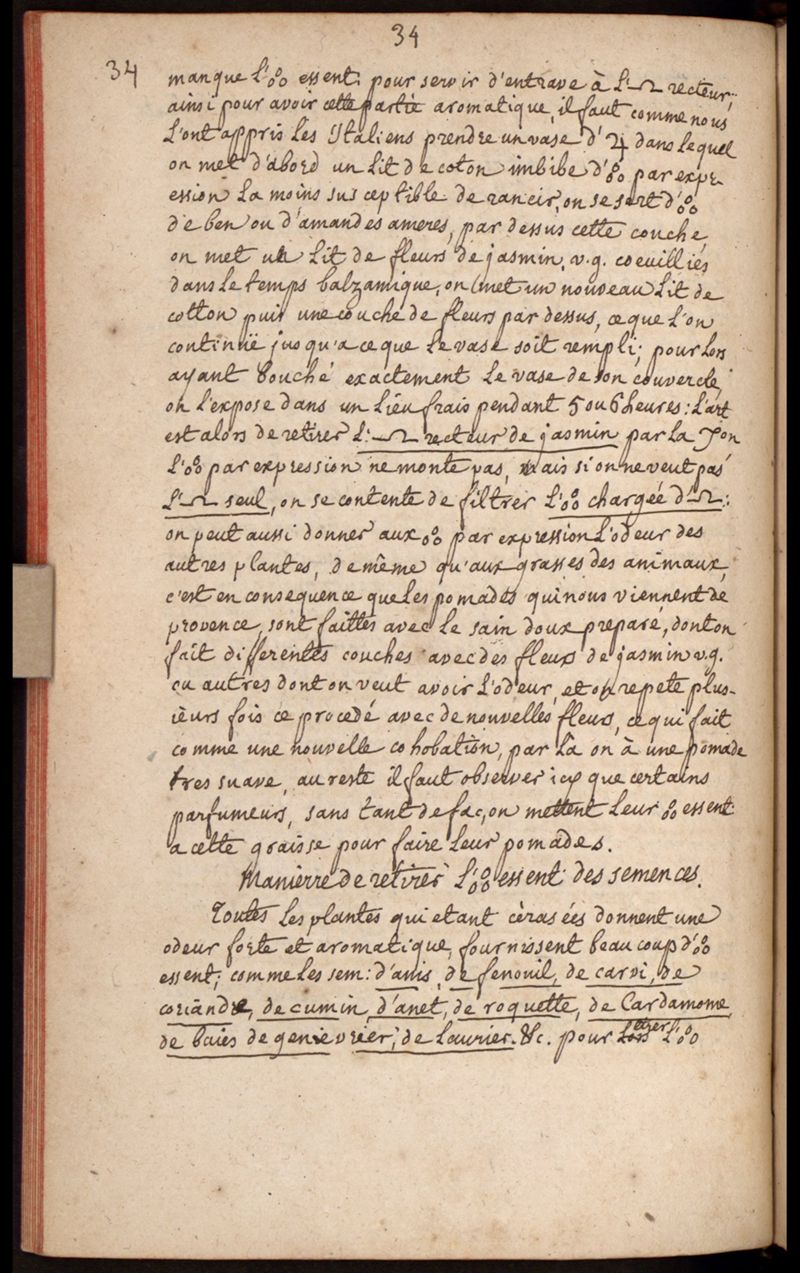 34
34
manque l'o°o essent: pour servir d'entrave à l':♎ recteur..
ainsi pour avoir cette partie aromatique, il faut comme nous
l'ont appris les Italiens prendre un vase d'♃ dans lequel
on met d'abord un lit de coton imbibe d'o°o par expr-
ession la moins susceptible de rancir, on se sert d'o°o
de ben ou d'amandes ameres, par dessus cette couche,
on met un lit de fleurs de jasmin, v.g. coeuilliés
dans le temps balzamique, on met un nouveau lit de
cotton puis une couche de fleurs par dessus, ce que l'on
continuë jusqu'a ce que le vase soit rempli; pour lors
ayant bouché exactement le vase de son couvercle,
on l'expose dans un lieu frais pendant 5 ou 6 heures: l'art
est alors de retirer l':♎ recteur de jasmin par la ♈on
l'o°o par expression ne monte pas, mais si on ne veut pas
l':♎ seul, on se contente de filtrer l'o°o chargée d':♎:
on peut aussi donner aux o°o par expression l'odeur des
autres plantes, de même qu'aux graisses des animaux,
c'est en consequence que les pomades qui nous viennent de
provence, sont faittes avec le sain doux preparé, dont on
fait differentes couches avec des fleurs de jasmin v.g.
ou autres dont on veut avoir l'odeur, et on repete plus-
ieurs fois ce procedé avec de nouvelles fleurs, ce qui fait
comme une nouvelle cohobation, par là on à une pomade
tres suave, au reste il faut observer icy que certains
parfumeurs, sans tant de façon mettent leur o°o essent:
a cette graisse pour faire leur pomades.
Manierre de retirer l'o°o essent: des semences.
Toutes les plantes qui etant ècrasées donnent une
odeur forte et aromatique, fournissent beaucoup d'o°o
essent; comme les sem: d'anis, de fenouil, de carvi, de
coriandre, de cumin, d'anet, de roquette, de Cardamome,
de baies de genievrier, de laurier. &c. pour l'o°o